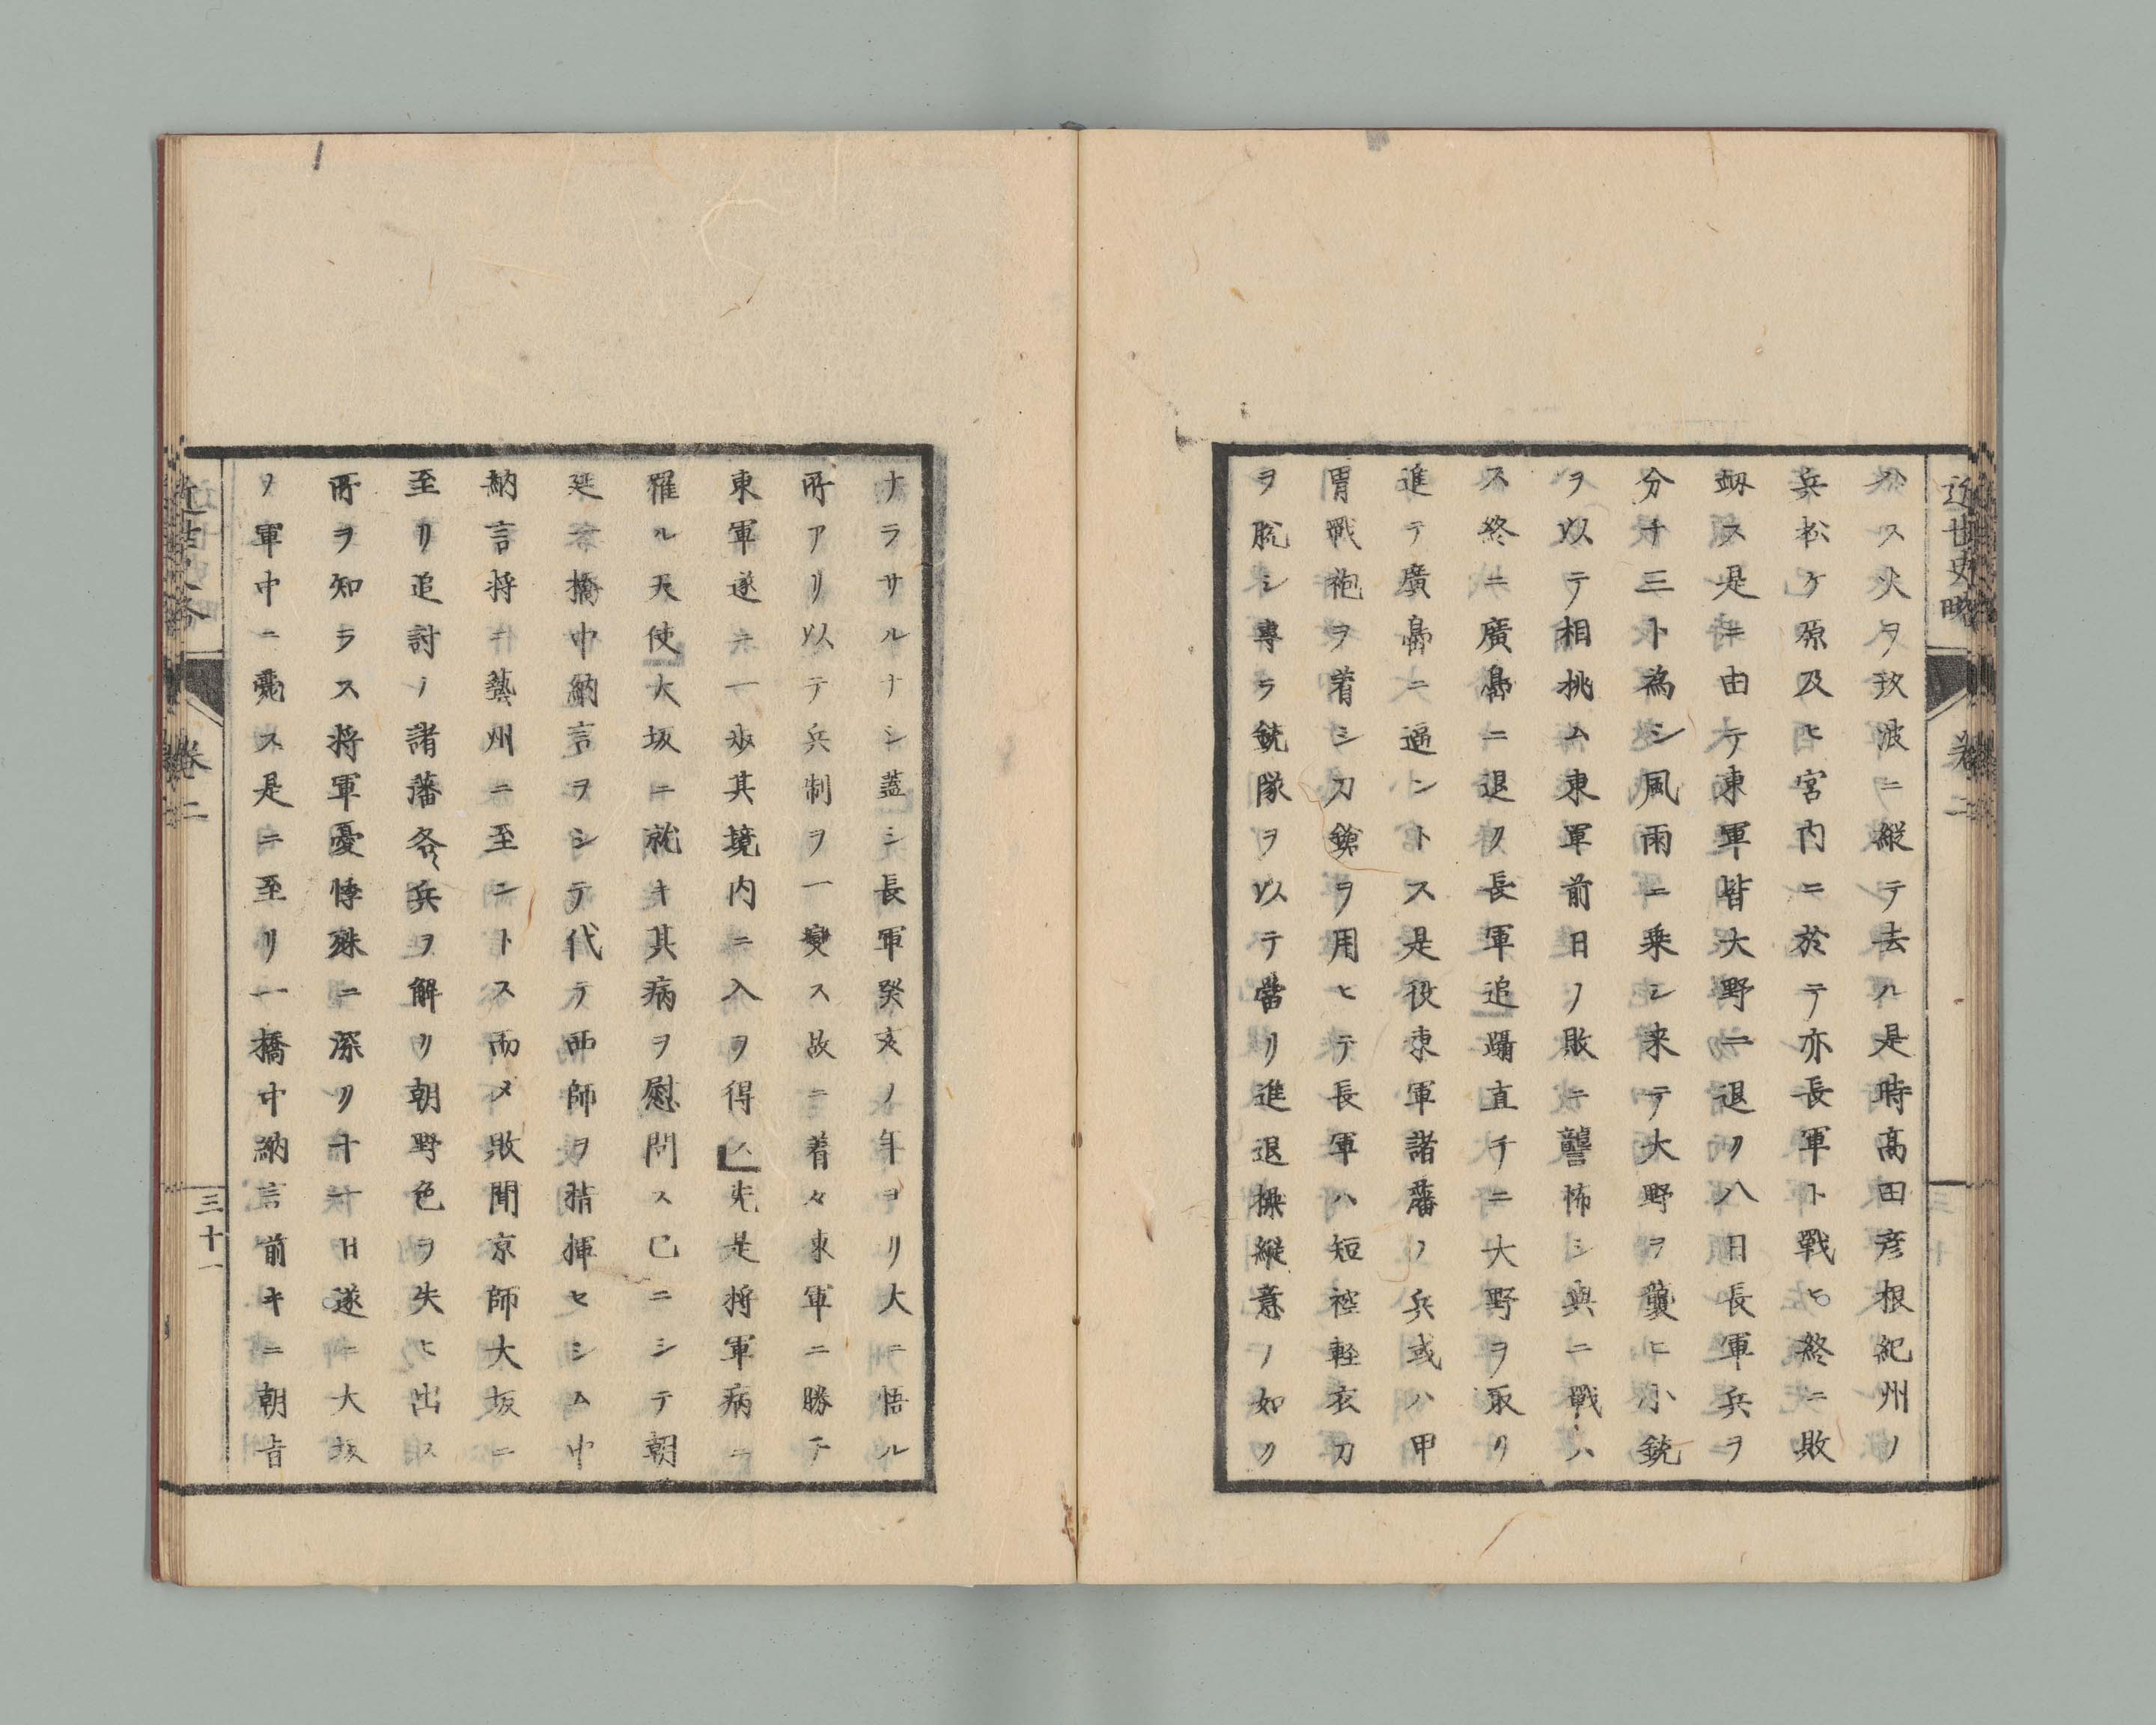 近世史略
卷二
ス火ヲ玖波ニ縦テ去ル是時髙田彦根紀州ノ
兵松ケ原及ヒ宮内ニ於テ亦長軍ト戰ヒ終ニ敗
衂ス是ニ由テ東軍皆大野ニ退ク八日長軍兵ヲ
分チ三ト為シ風雨ニ乗シ来テ大野ヲ襲ヒ小銃
ヲ以テ相挑ム東軍前日ノ敗ニ讋怖シ與ニ戰ハ
ス終ニ廣嶌ニ退ク長軍追躡直チニ大野ヲ取リ
進テ廣嶌ニ逼ントス是役東軍諸藩ノ兵或ハ甲
冑戰袍ヲ着シ刀鎗ヲ用ヒテ長軍ハ短袴軽衣刀
ヲ脱シ專ラ銃隊ヲ以テ當リ進退操縦意ノ如ク
ナラサルナシ蓋シ長軍癸亥ノ年ヨリ大ニ悟ル
所アリ以テ兵制ヲ一變ス故ニ着々東軍ニ勝テ
東軍遂ニ一歩其境内ニ入ヲ得ス先是将軍病ニ
罹ル天使大坂ニ就キ其病ヲ慰問ス已ニシテ朝
廷一橋中納言ヲシテ代テ西師ヲ指揮セシム中
納言将ニ藝州ニ至ントス而メ敗聞京師大坂ニ
至リ追討ノ諸藩各兵ヲ解リ朝野色ヲ失ヒ出ス
所ヲ知ラス将軍憂悸殊ニ深リ十一日遂ニ大坂
ノ軍中ニ薨ス是ニ至リ一橋中納言前キニ朝旨
近世史略
卷二
三十一